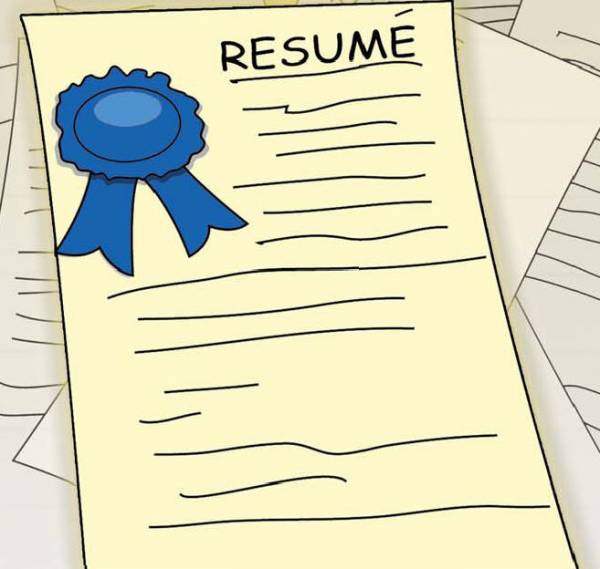 RESUMÉ